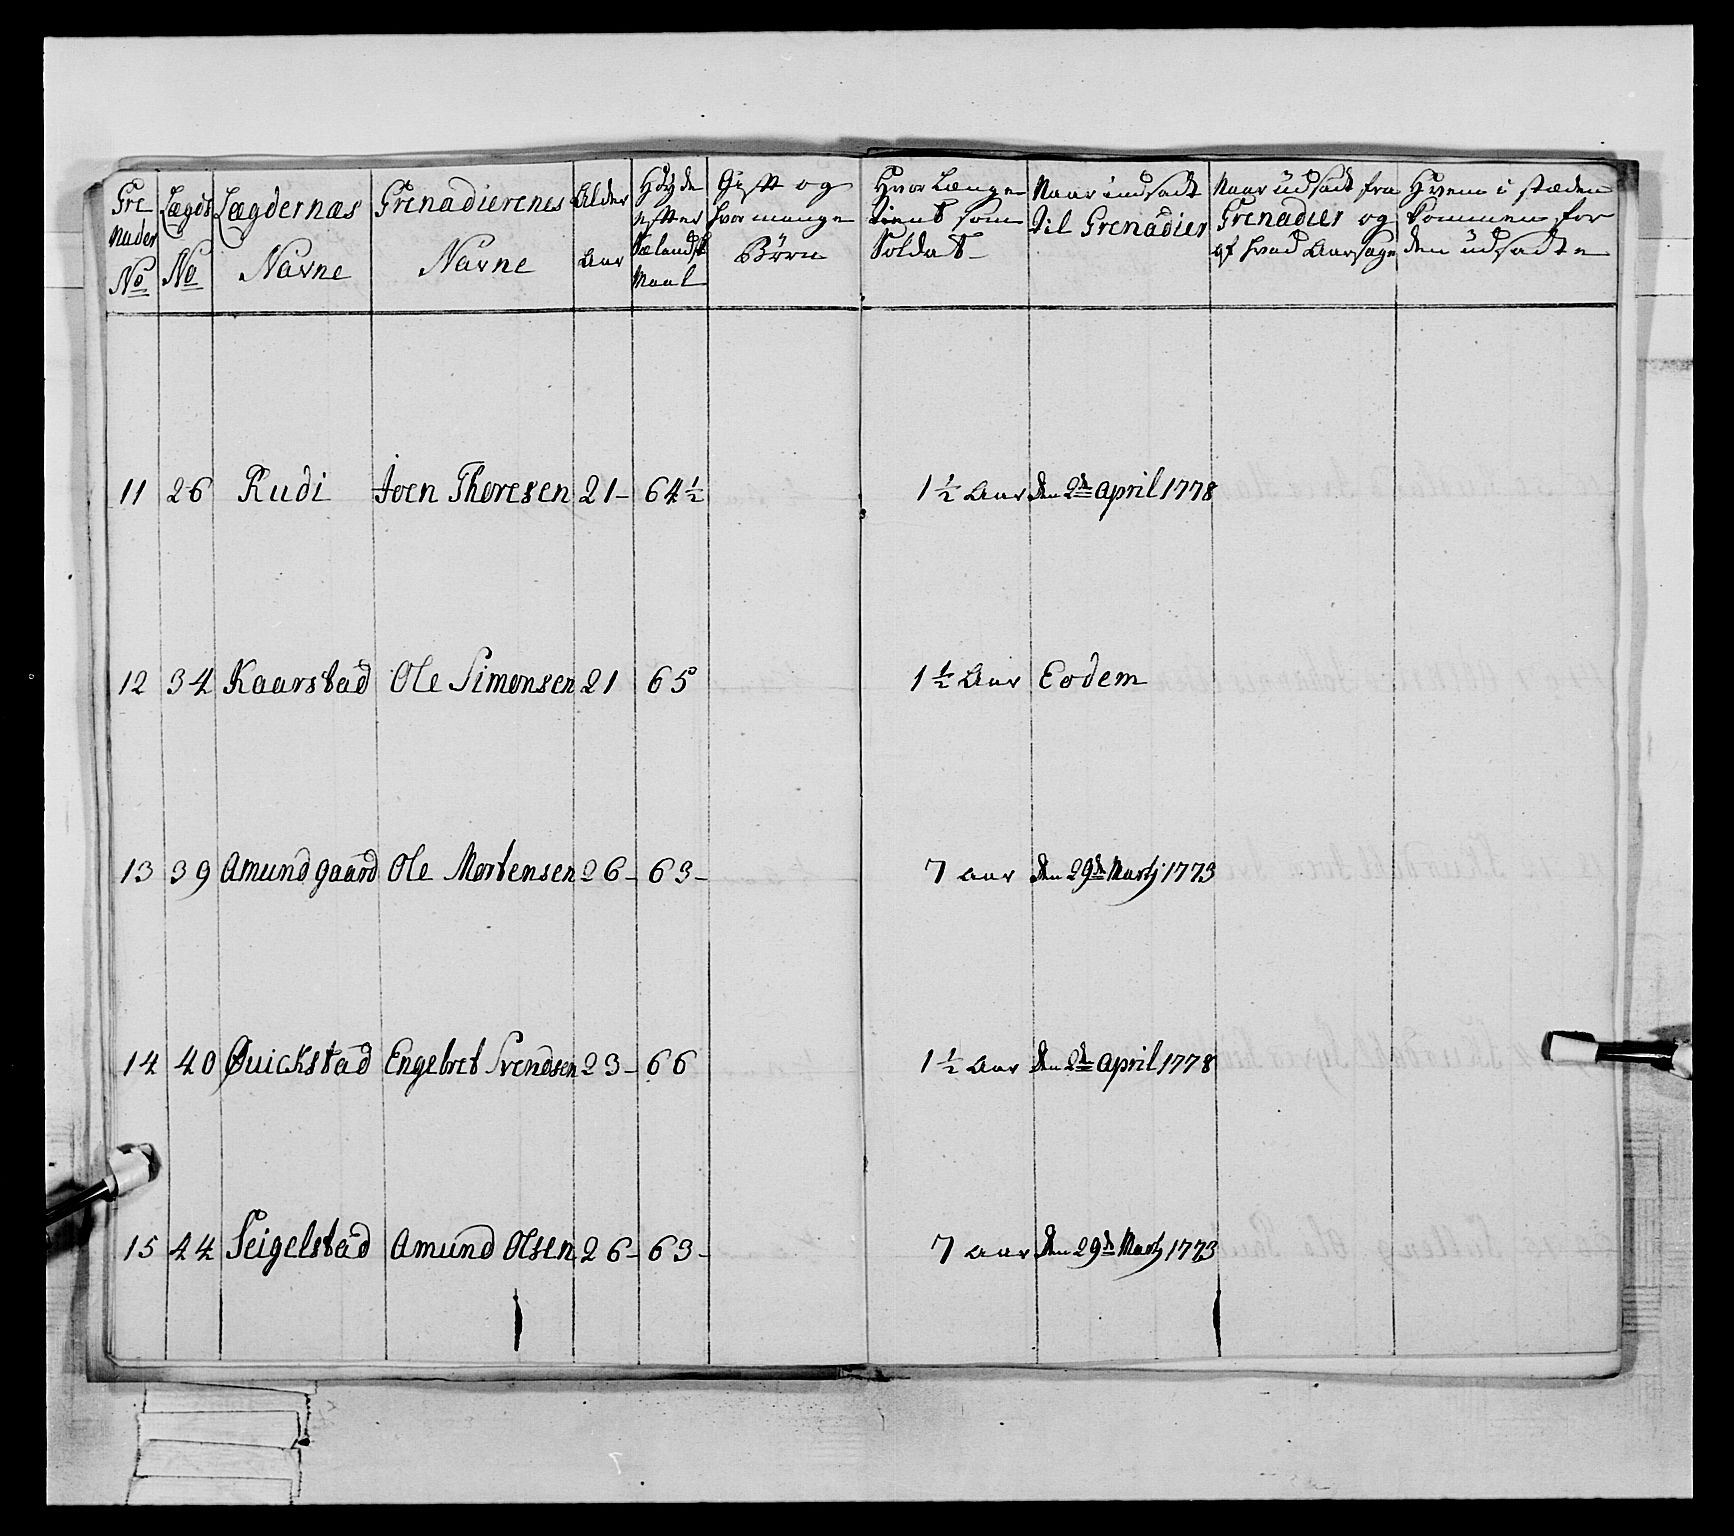 Gre nader No
Lægds No
Lægdernæs Navne
Grenadierenes Navne
Alder Aar
Høyde efter Sælandsk Maal
Gift og hvor mange Børn
Hvor Længe tient som Soldat
Naar indsadt til Grenadier
Naar üdsadt fra Grenadier og af hvad Aarsage
Hvem i stæden kommen for den üdsadte
11 26 Rudi Joen Thoresen 21- 64 ½ 1 ½ Aar den 2de April 1778
12 34 Kaarstad Ole Simonsen 21 65 1 ½ Aar Eodem
13 39 Amundgaard Ole Mortensen 26- 63- 7 Aar den 29de Martj 1773
14 40 Quickstad Engebret Svendsen 23- 66 1 ½ Aar den 2de April 1778
15 44 Seigelstad Amund Olsen 26- 63- 7 Aar den 29de Martj 1773